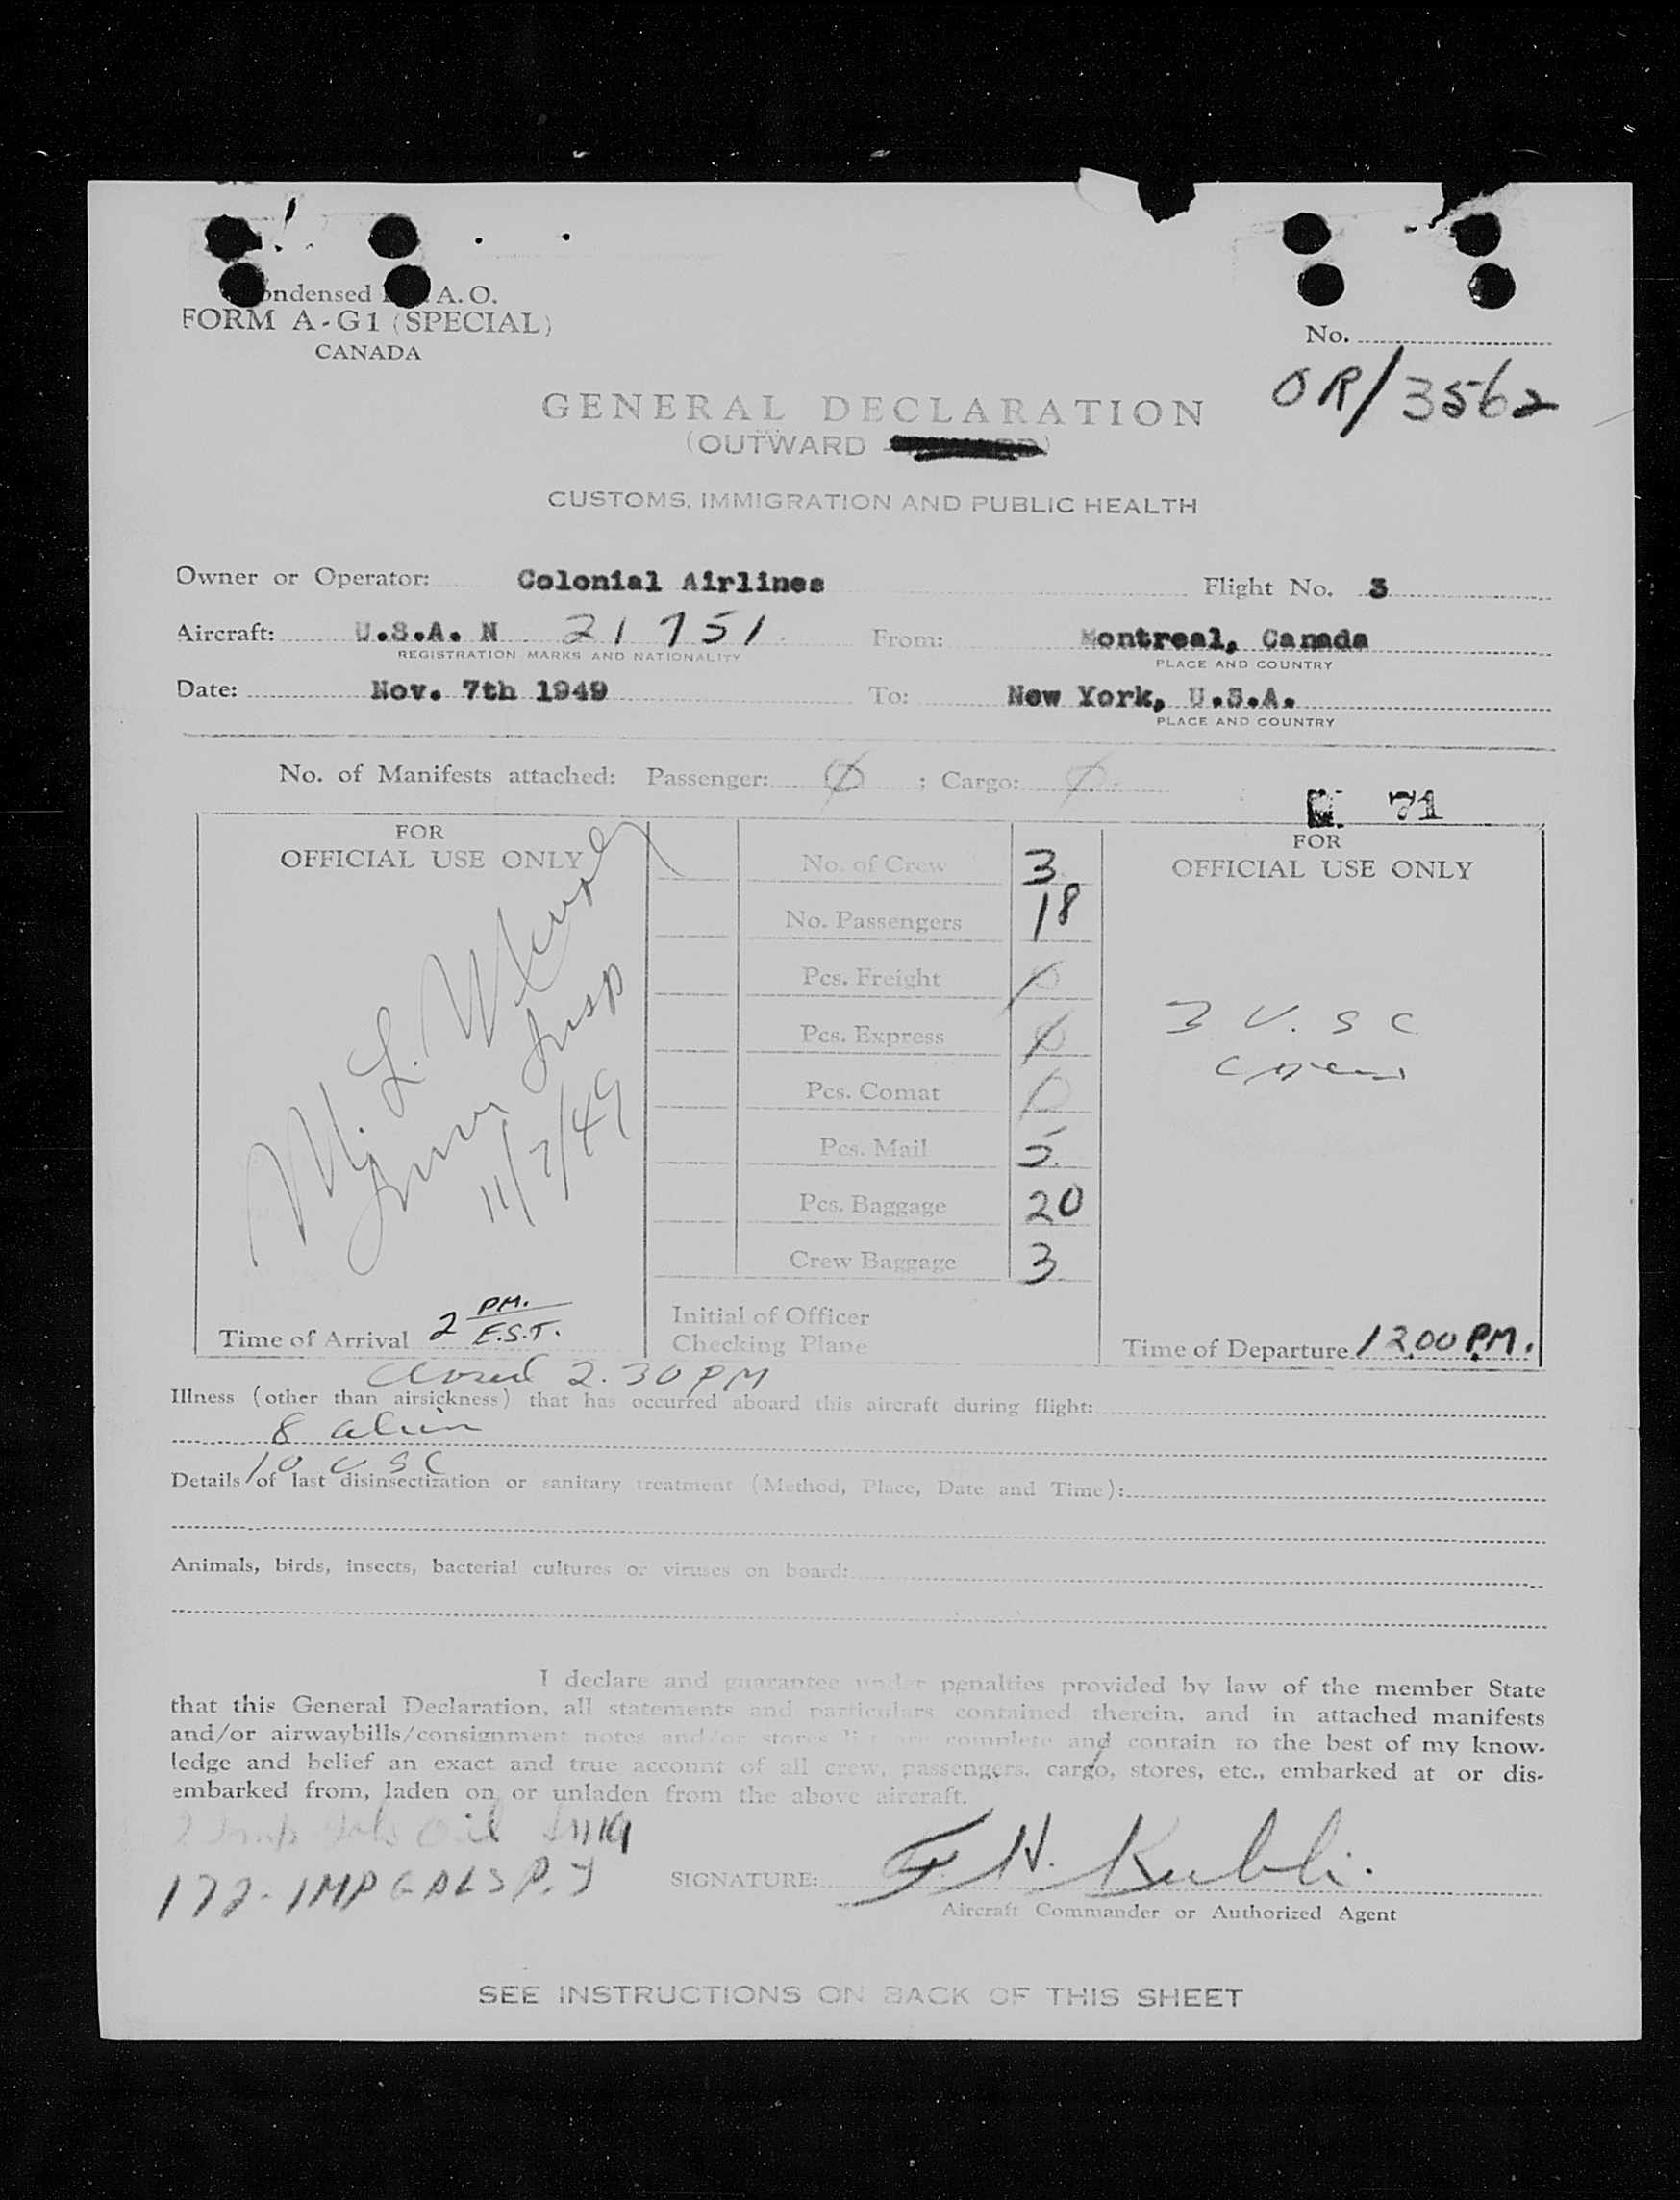 ondensed A. O.
FORM A-G1 (SPECIAL)
CANADA
No.
OR/3562
GENERAL DECLARATION
(OUTWARD
CUSTOMS, IMMIGRATION AND PUBLIC HEALTH
Owner or Operator: Colonial Airlines Flight No. 3
Aircraft: U.S.A. N 21751 From: Montreal, Canada
REGISTRATION MARKS AND NATIONALITY PLACE AND COUNTRY
Date: Nov. 7th 1949 To: New York, U.S.A.
PLACE AND COUNTRY
No. of Manifests attached: Passenger: Ø ; Cargo: Ø
71
FOR
OFFICIAL USE ONLY
M. L.
Insp
11/7/49
Time of Arrival 2 PM. E.S.T.
No. of Crew 3
No. Passengers 18
Pcs. Freight Ø
Pcs. Express Ø
Pcs. Comat Ø
Pcs. Mail 5
Pcs. Baggage 20
Crew Baggage 3
Initial of Officer
Checking Plane
FOR
OFFICIAL USE ONLY
3 U.S C
Time of Departure 1200 P.M.
closed 2.30 PM
Illness (other than airsickness) that has occurred aboard this aircraft during flight:
8 alien
10 U S C
Details of last disinsectization or sanitary treatment (Method, Place, Date and Time):
Animals, birds, insects, bacterial cultures or viruses on board:
I declare and guarantee under penalties provided by law of the member State
that this General Declaration, all statements and particulars contained therein, and in attached manifests
and/or airwaybills/consignment notes and/or stores list are complete and contain to the best of my know-
ledge and belief an exact and true account of all crew, passengers, cargo, stores, etc., embarked at or dis-
embarked from, laden on or unladen from the above aircraft.
Oil
172-IMP GALS
SIGNATURE: F. H. Kubli.
Aircraft Commander or Authorized Agent
SEE INSTRUCTIONS ON BACK OF THIS SHEET